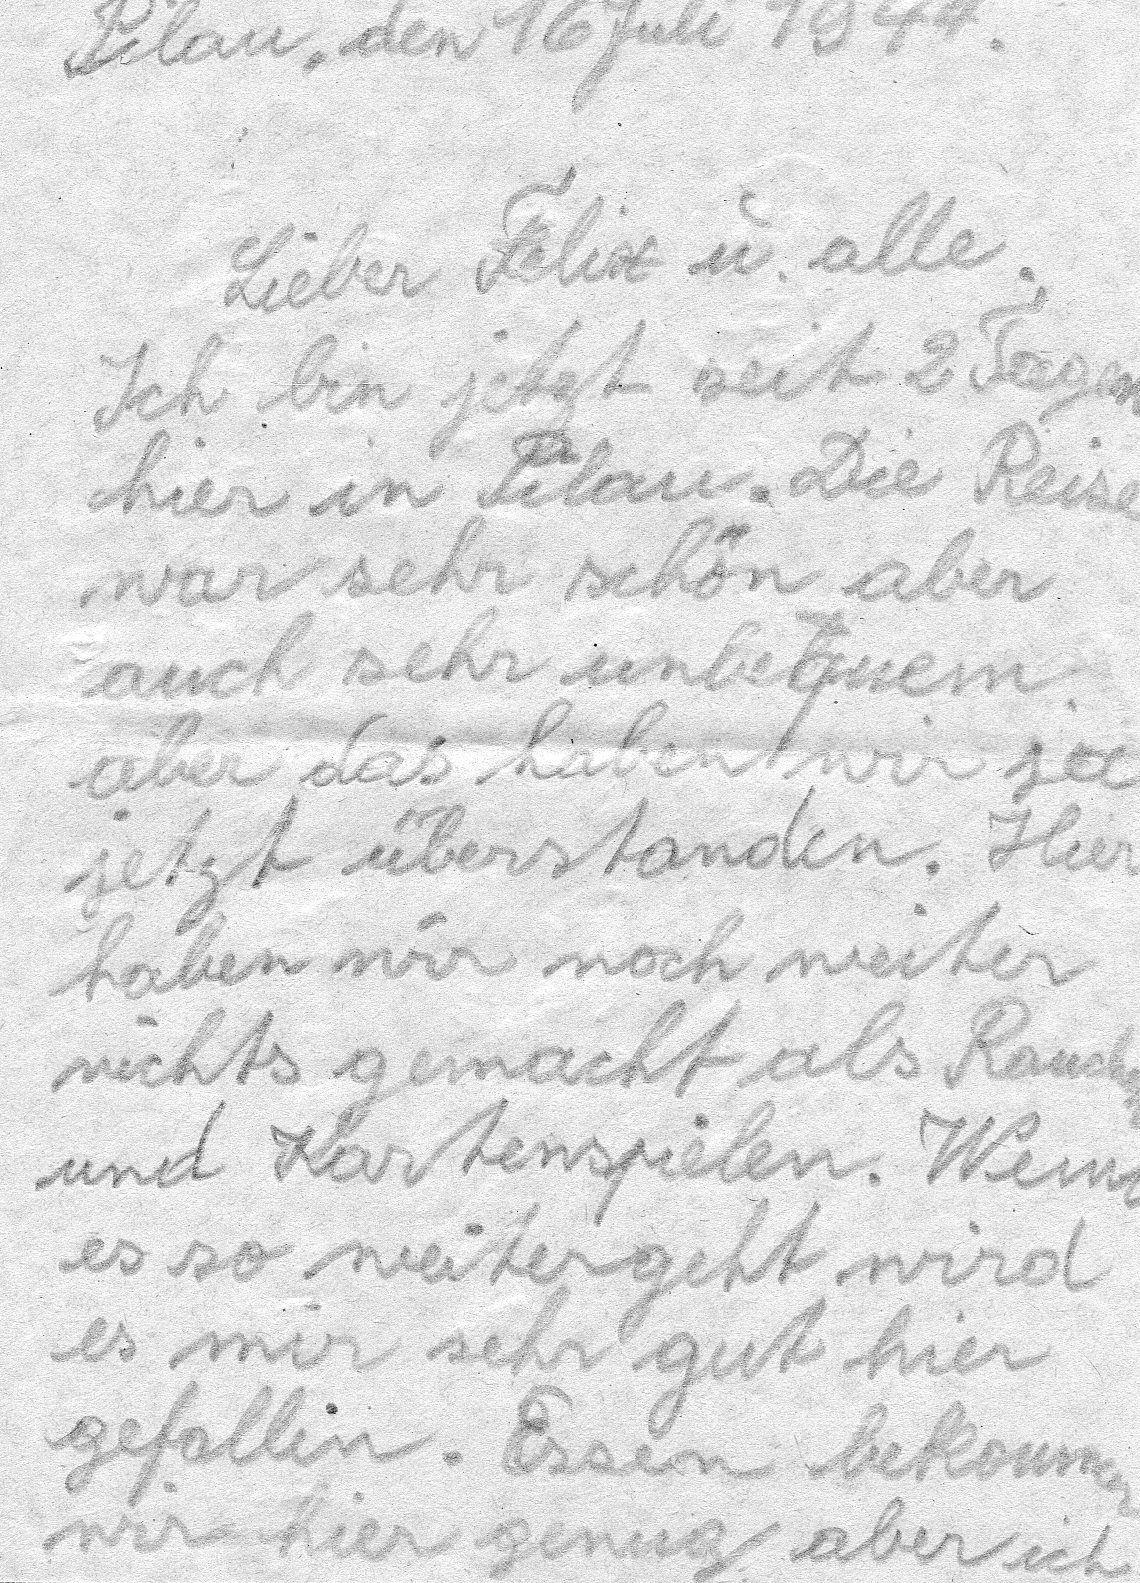 Pilau, den 16 Juli 1944.
Lieber Felix u. alle.
Ich bin jetzt seit 2 Tagen
hier in Pilau. Die Reise
war sehr schön aber
auch sehr unbequem.
aber das haben wir ja
jetzt überstanden. Hier
haben wir noch weiter
nichts gemacht als Rauchen
und Kartenspielen. Wenn
es so weitergeht wird
es mir sehr gut hier
gefallen. Essen bekommen
wir hier genug aber ich